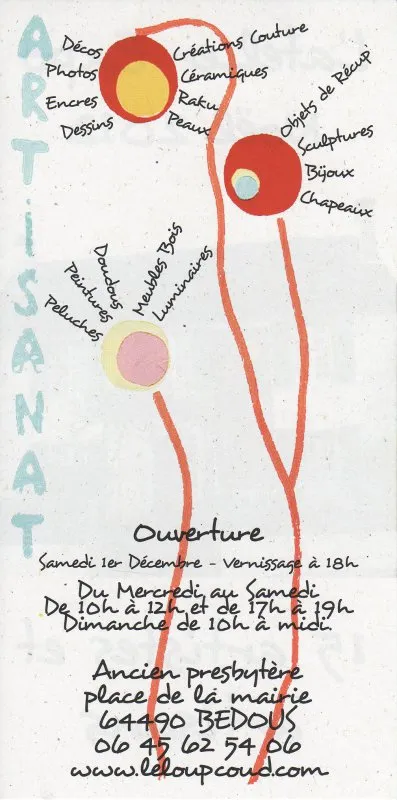 ARTiSANAT
Décos
Photos
Encres
Dessins
Créations Couture
Céramiques
Raku
Peaux
Objets de Récup'
Sculptures
Bijoux
Chapeaux
Peluches
Peintures
Doudous
Meubles Bois
Luminaires
Ouverture
Samedi 1er Décembre - Vernissage à 18h
Du Mercredi au Samedi
De 10h à 12h et de 17h à 19h
Dimanche de 10h à midi.
Ancien presbytère
place de la mairie
64490 BEDOUS
06 45 62 54 06
www.leloupcoud.com